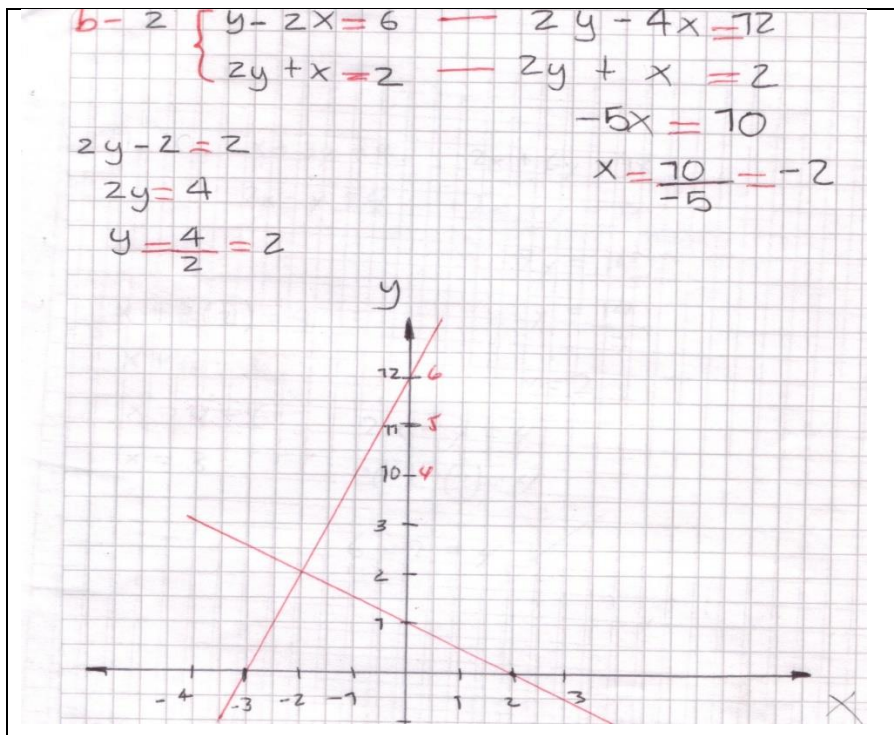 b- 2 { y - 2x = 6 — 2y - 4x = 12
2y + x = 2 — 2y + x = 2
-5x = 10
2y - 2 = 2
x = 10/-5 = -2
2y = 4
y = 4/2 = 2
y
12 6
11 5
10 4
3
2
1
-4 -3 -2 -1 1 2 3
x